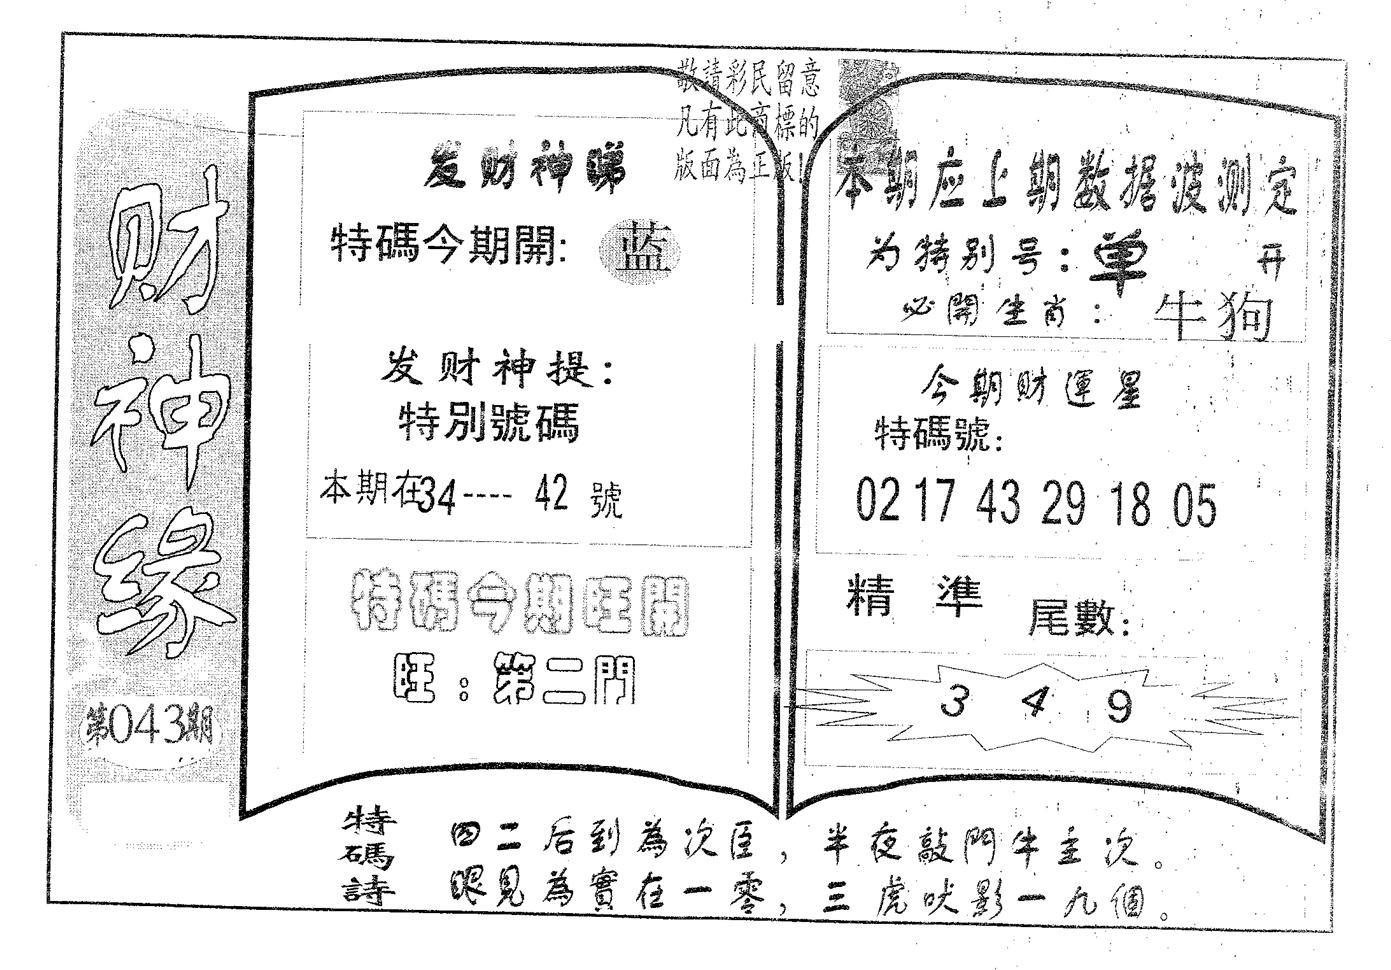 财神缘
第043期
敬請彩民留意
凡有此商標的
版面為正版!
发财神睇
特碼今期開: 蓝
发财神提:
特別號碼
本期在34---- 42 號
特碼今期旺開
旺:第二門
本期应上期数据波测定
为特别号:单 开
必開生肖: 牛狗
今期财運星
特碼號:
02 17 43 29 18 05
精 準 尾數:
3 4 9
特碼詩
四二后到為次臣,半夜敲門牛主次。
眼見為實在一零,三虎吠影一九個。